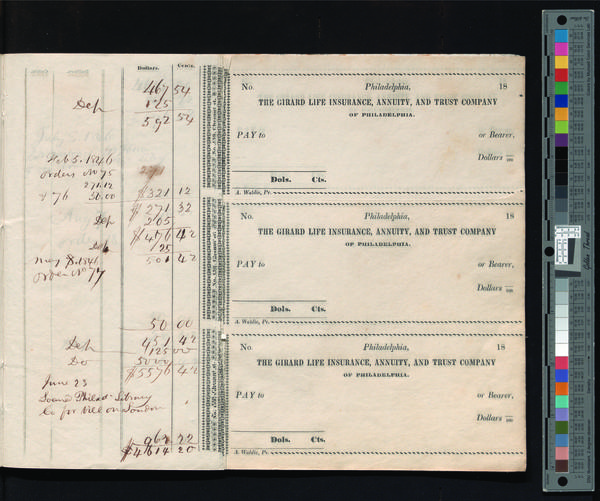 Dollars. Cents.
467 54
Dep 125
592 54
Feb 5. 1846
Orders No 75
271.12
" 76 50.00 $321 12
$271 32
Dep 205
$476 42
Dep 25
May 8. 1846 501 42
Order No 77
50 00
451 42
Dep 125 00
Do 5000
$5576 42
June 23
Loaned Philad. Library
Co for Bill on London
962 22
$4614 20
No. Philadelphia, 18
THE GIRARD LIFE INSURANCE, ANNUITY, AND TRUST COMPANY
OF PHILADELPHIA.
PAY to or Bearer,
Dollars /100
Dols. Cts.
A. Waldie, Pr.
No. Philadelphia, 18
THE GIRARD LIFE INSURANCE, ANNUITY, AND TRUST COMPANY
OF PHILADELPHIA.
PAY to or Bearer,
Dollars /100
Dols. Cts.
A. Waldie, Pr.
No. Philadelphia, 18
THE GIRARD LIFE INSURANCE, ANNUITY, AND TRUST COMPANY
OF PHILADELPHIA.
PAY to or Bearer,
Dollars /100
Dols. Cts.
A. Waldie, Pr.